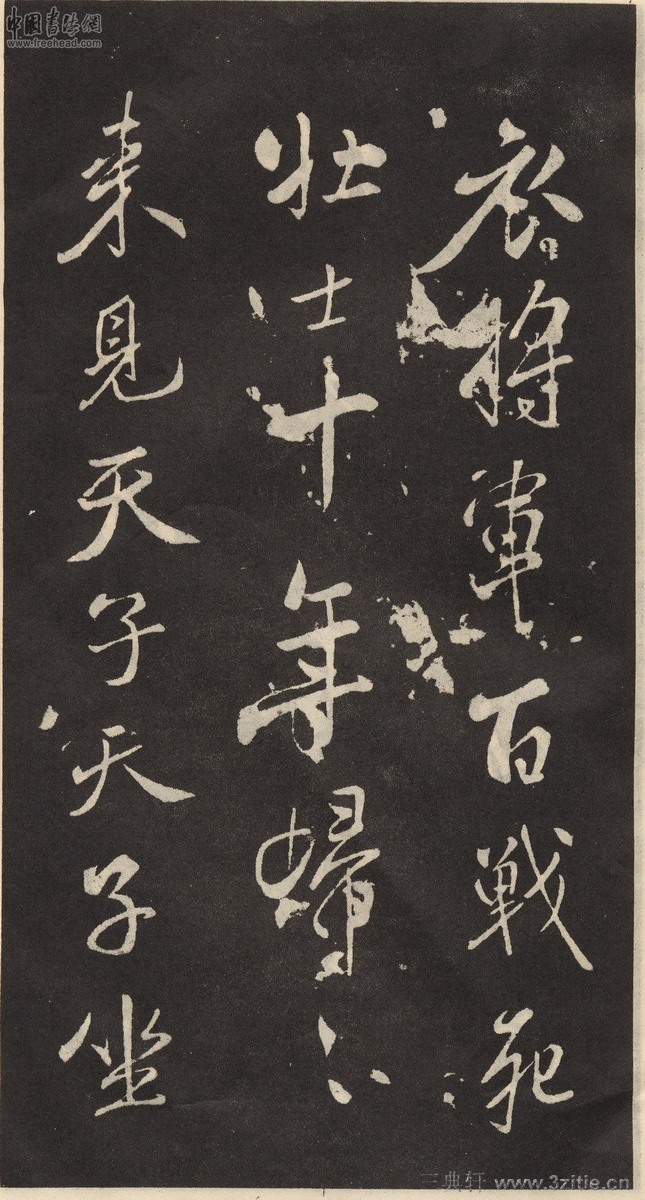 中國書法網
www.freehead.com
衣將軍百戰死
壯士十年歸〻
來見天子天子坐
三典轩 www.3zitie.cn